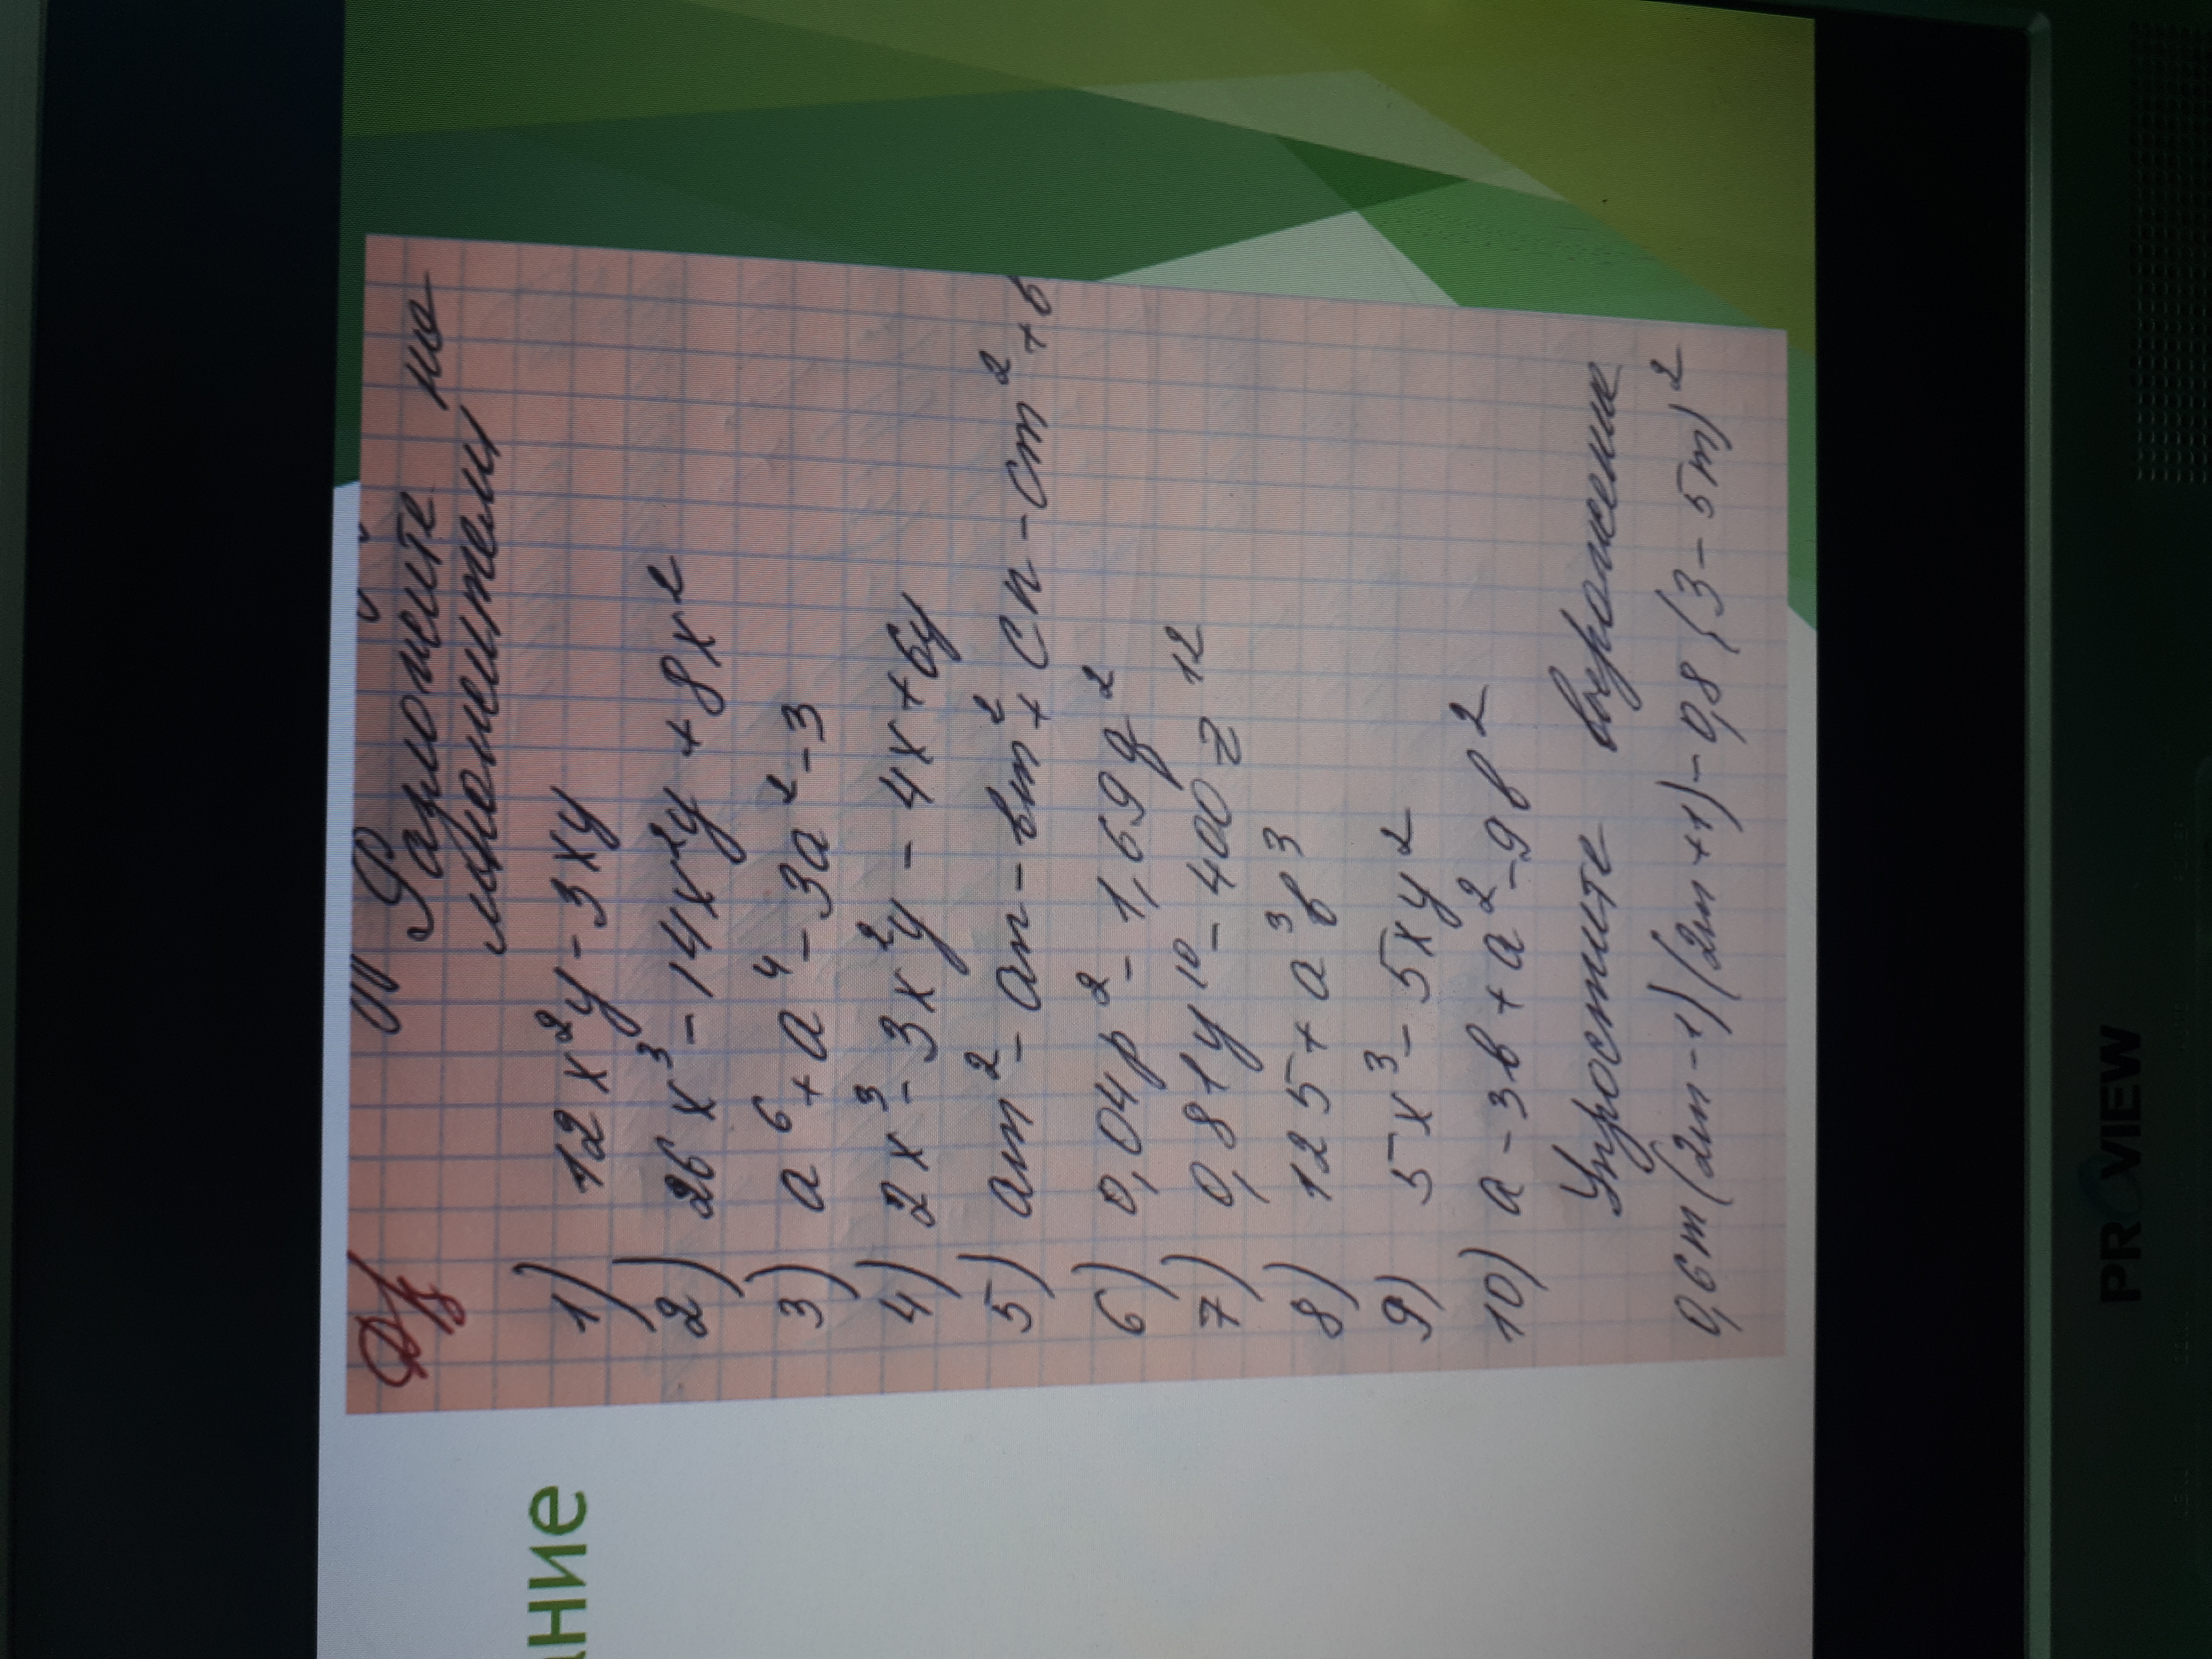 ание
ДЗ
Разложите на
множители
1) 12x²y - 3xy
2) 26x³ - 14x²y + 8x²
3) a⁶ + a⁴ - 3a² - 3
4) 2x³ - 3x²y - 4x + 6y
5) am² - an - bm² + cn - cm² + b
6) 0,04p² - 1,69q²
7) 0,81y¹⁰ - 400z¹²
8) 125 + a³b³
9) 5x³ - 5xy²
10) a - 3b + a² - 9b²
Упростите выражение
0,6m(2m-1)(2m+1) - 0,8(3-5m)²
PROVIEW